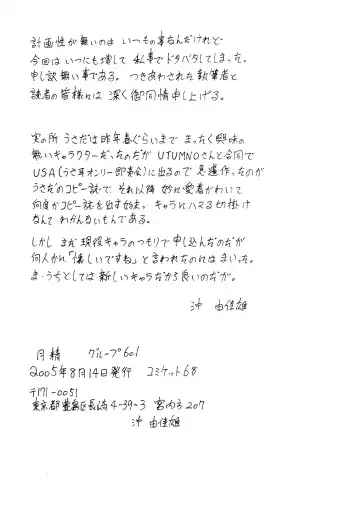 計画性が無いのは いつもの事なんだけれど
今回は いつにも増して 私事でドタバタしてしまった。
申し訳無い事である。 つきあわされた執筆者と
読者の皆様には 深く御同情申し上げる。
実の所 うさだは昨年春ぐらいまで まったく興味の
無いキャラクターだったのだが UTUMNOさんと合同で
USA(うさ耳オンリー即売会)に出るので 急遽作ったのが
うさだのコピー誌で それ以降 妙に愛着がわいて
何度かコピー誌を出す始末。 キャラにハマる切掛け
なんて わかんないもんである。
しかし まだ現役キャラのつもりで申し込んだのだが
何人かに「懐しいですね」と言われたのにはまいった。
ま、うちとしては新しいキャラだから良いのだが。
沖 由佳雄
月精 グループ601
2005年8月14日発行 コミケット68
〒171-0051
東京都豊島区長崎4-39-3 宮内方207
沖 由佳雄